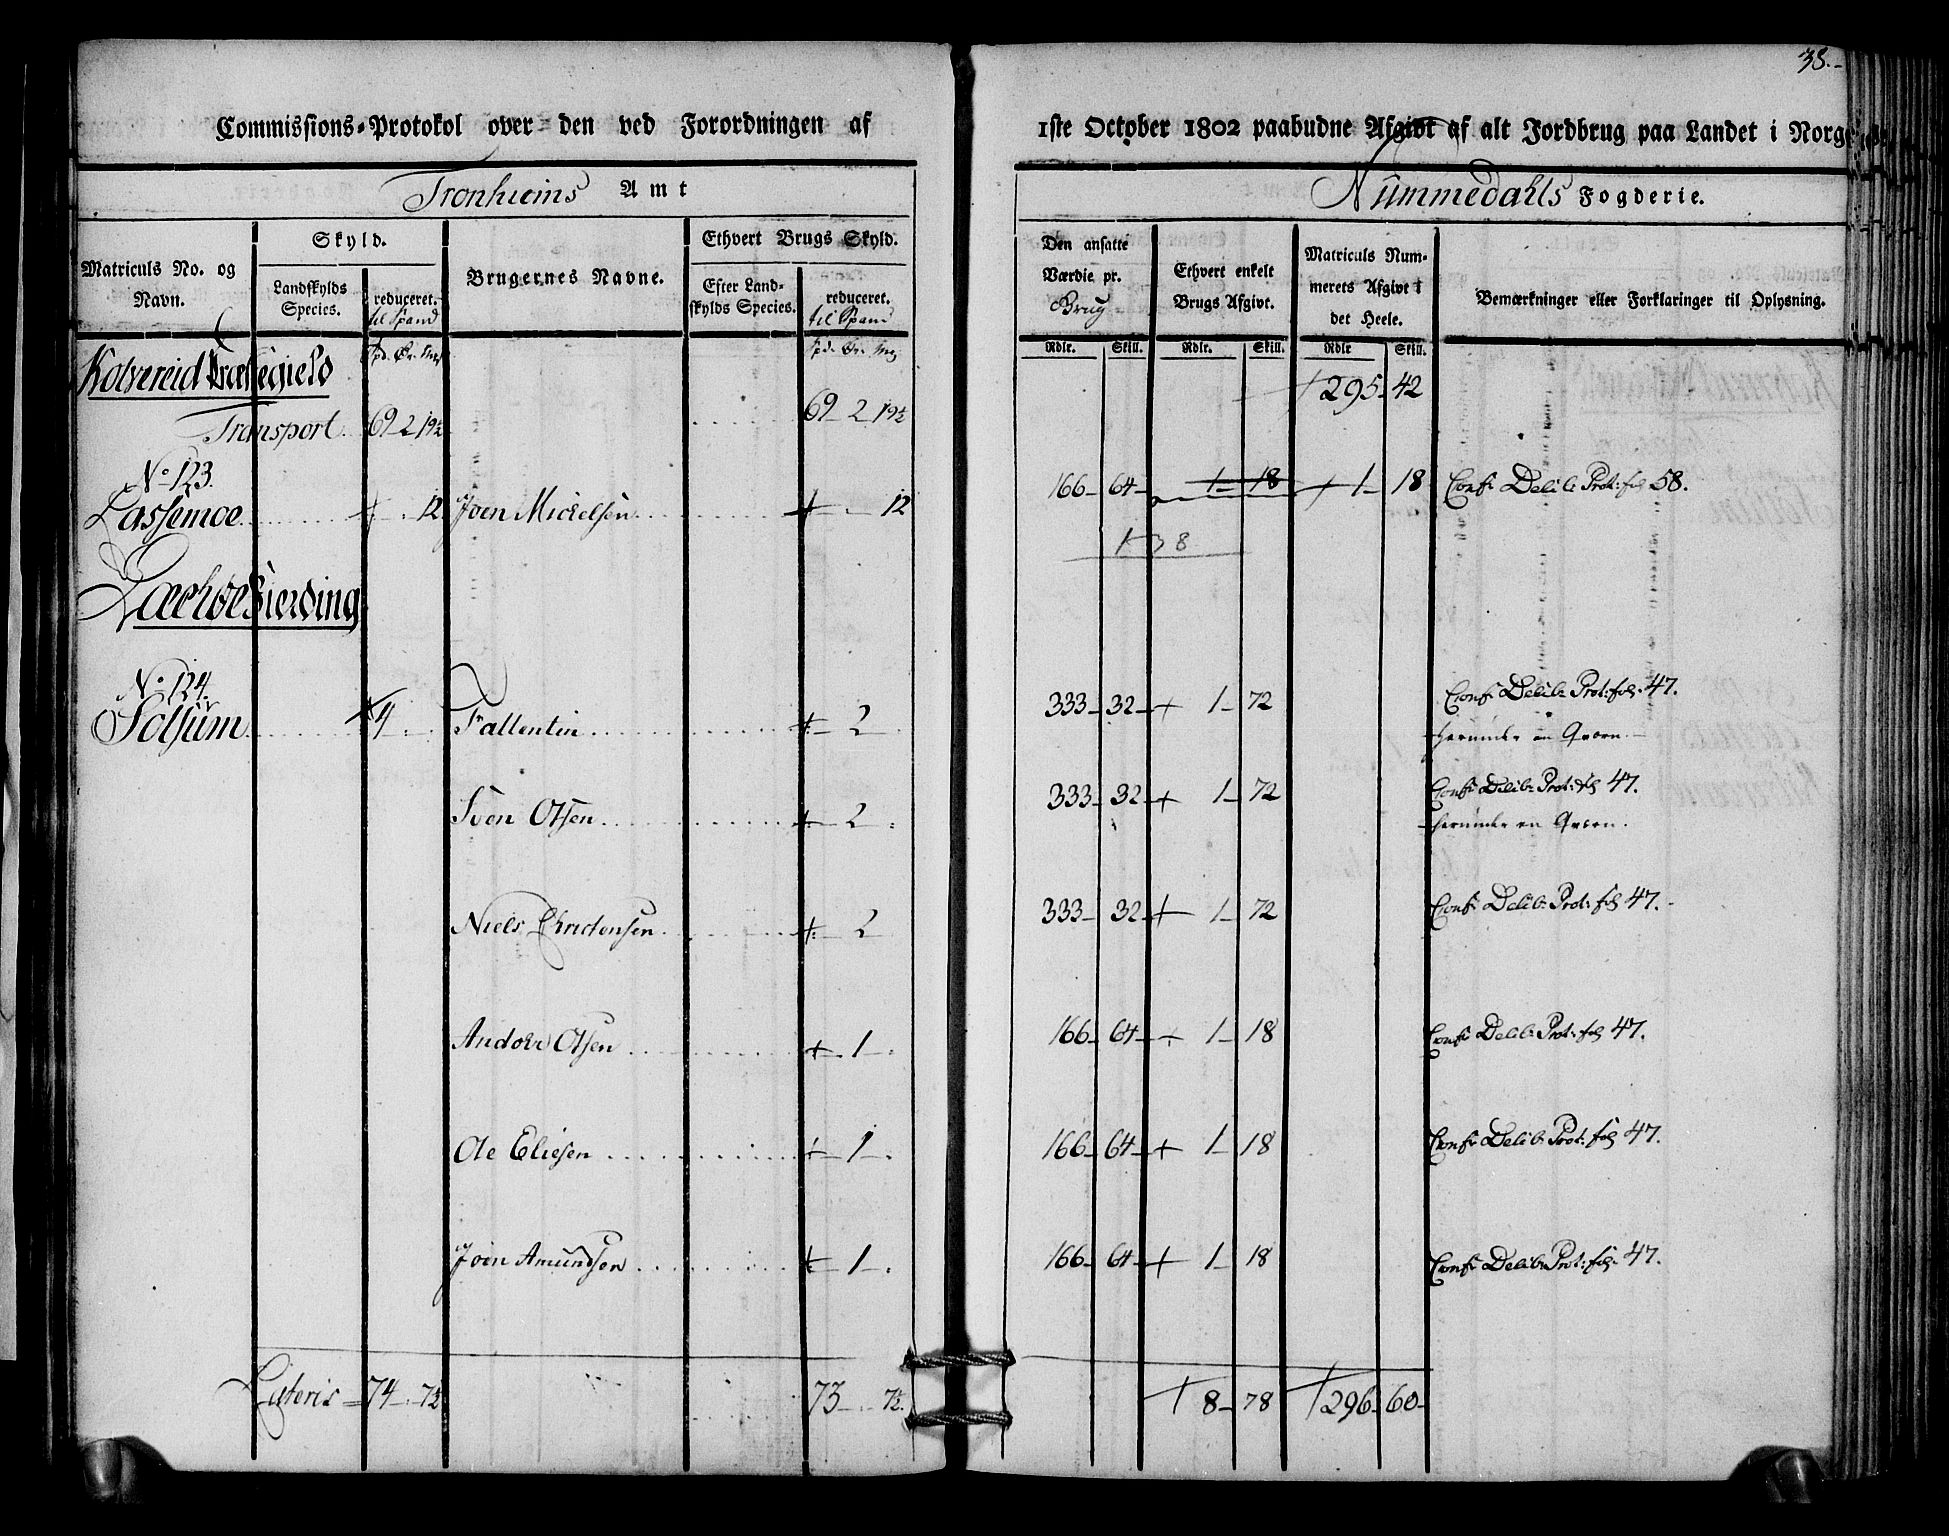 38.
Commissions-Protokol over den ved Forordningen af 1ste October 1802 paabudne Afgivt af alt Jordbrug paa Landet i Norge
Tronhiems Amt
Nummedahls Fogderie.
Matriculs No. og Navn.
Skyld.
Landskylds Species.
reduceret. til Spand
Brugernes Navne.
Ethvert Brugs Skyld.
Efter Landskylds Species.
reduceret. til Spand
Den ansatte Værdie pr. Brug
Ethvert enkelt Brugs Afgivt.
Matriculs Nummerets Afgivt i det Heele.
Bemærkninger eller Forklaringer til Oplysning.
Rdlr. Skill. Rdlr. Skill. Rdlr Skill.
Kolvereid Præstegield
Transport 69 2 19½ 69 2 19½ 295 42
No 123.
Lassemoe 12 Joen Mickelsen 12 166 64 1 18 1 18 Conf: Delib: Prot: fol 58.
138
Fierding
No 124.
Solsum 4 Fallentin 2 333 32 1 72 Conf: Delib: Prot: fol: 47.
herunder en Qvern.
Sven Olsen 2 333 32 1 72 Conf: Delib: Prot: fol 47.
herunder en Qvern.
Niels Christensen 2 333 32 1 72 Conf: Delib: Prot: fol 47.
Olsen 1 166 64 1 18 Conf: Delib: Prot: fol 47.
Ole Eliesen 1 166 64 1 18 Conf: Delib: Prot: fol 47.
Joen Amundsen 1 166 64 1 18 Conf: Delib: Prot: fol. 47.
Lateris 74 7½ 73 7½ 8 78 296 60